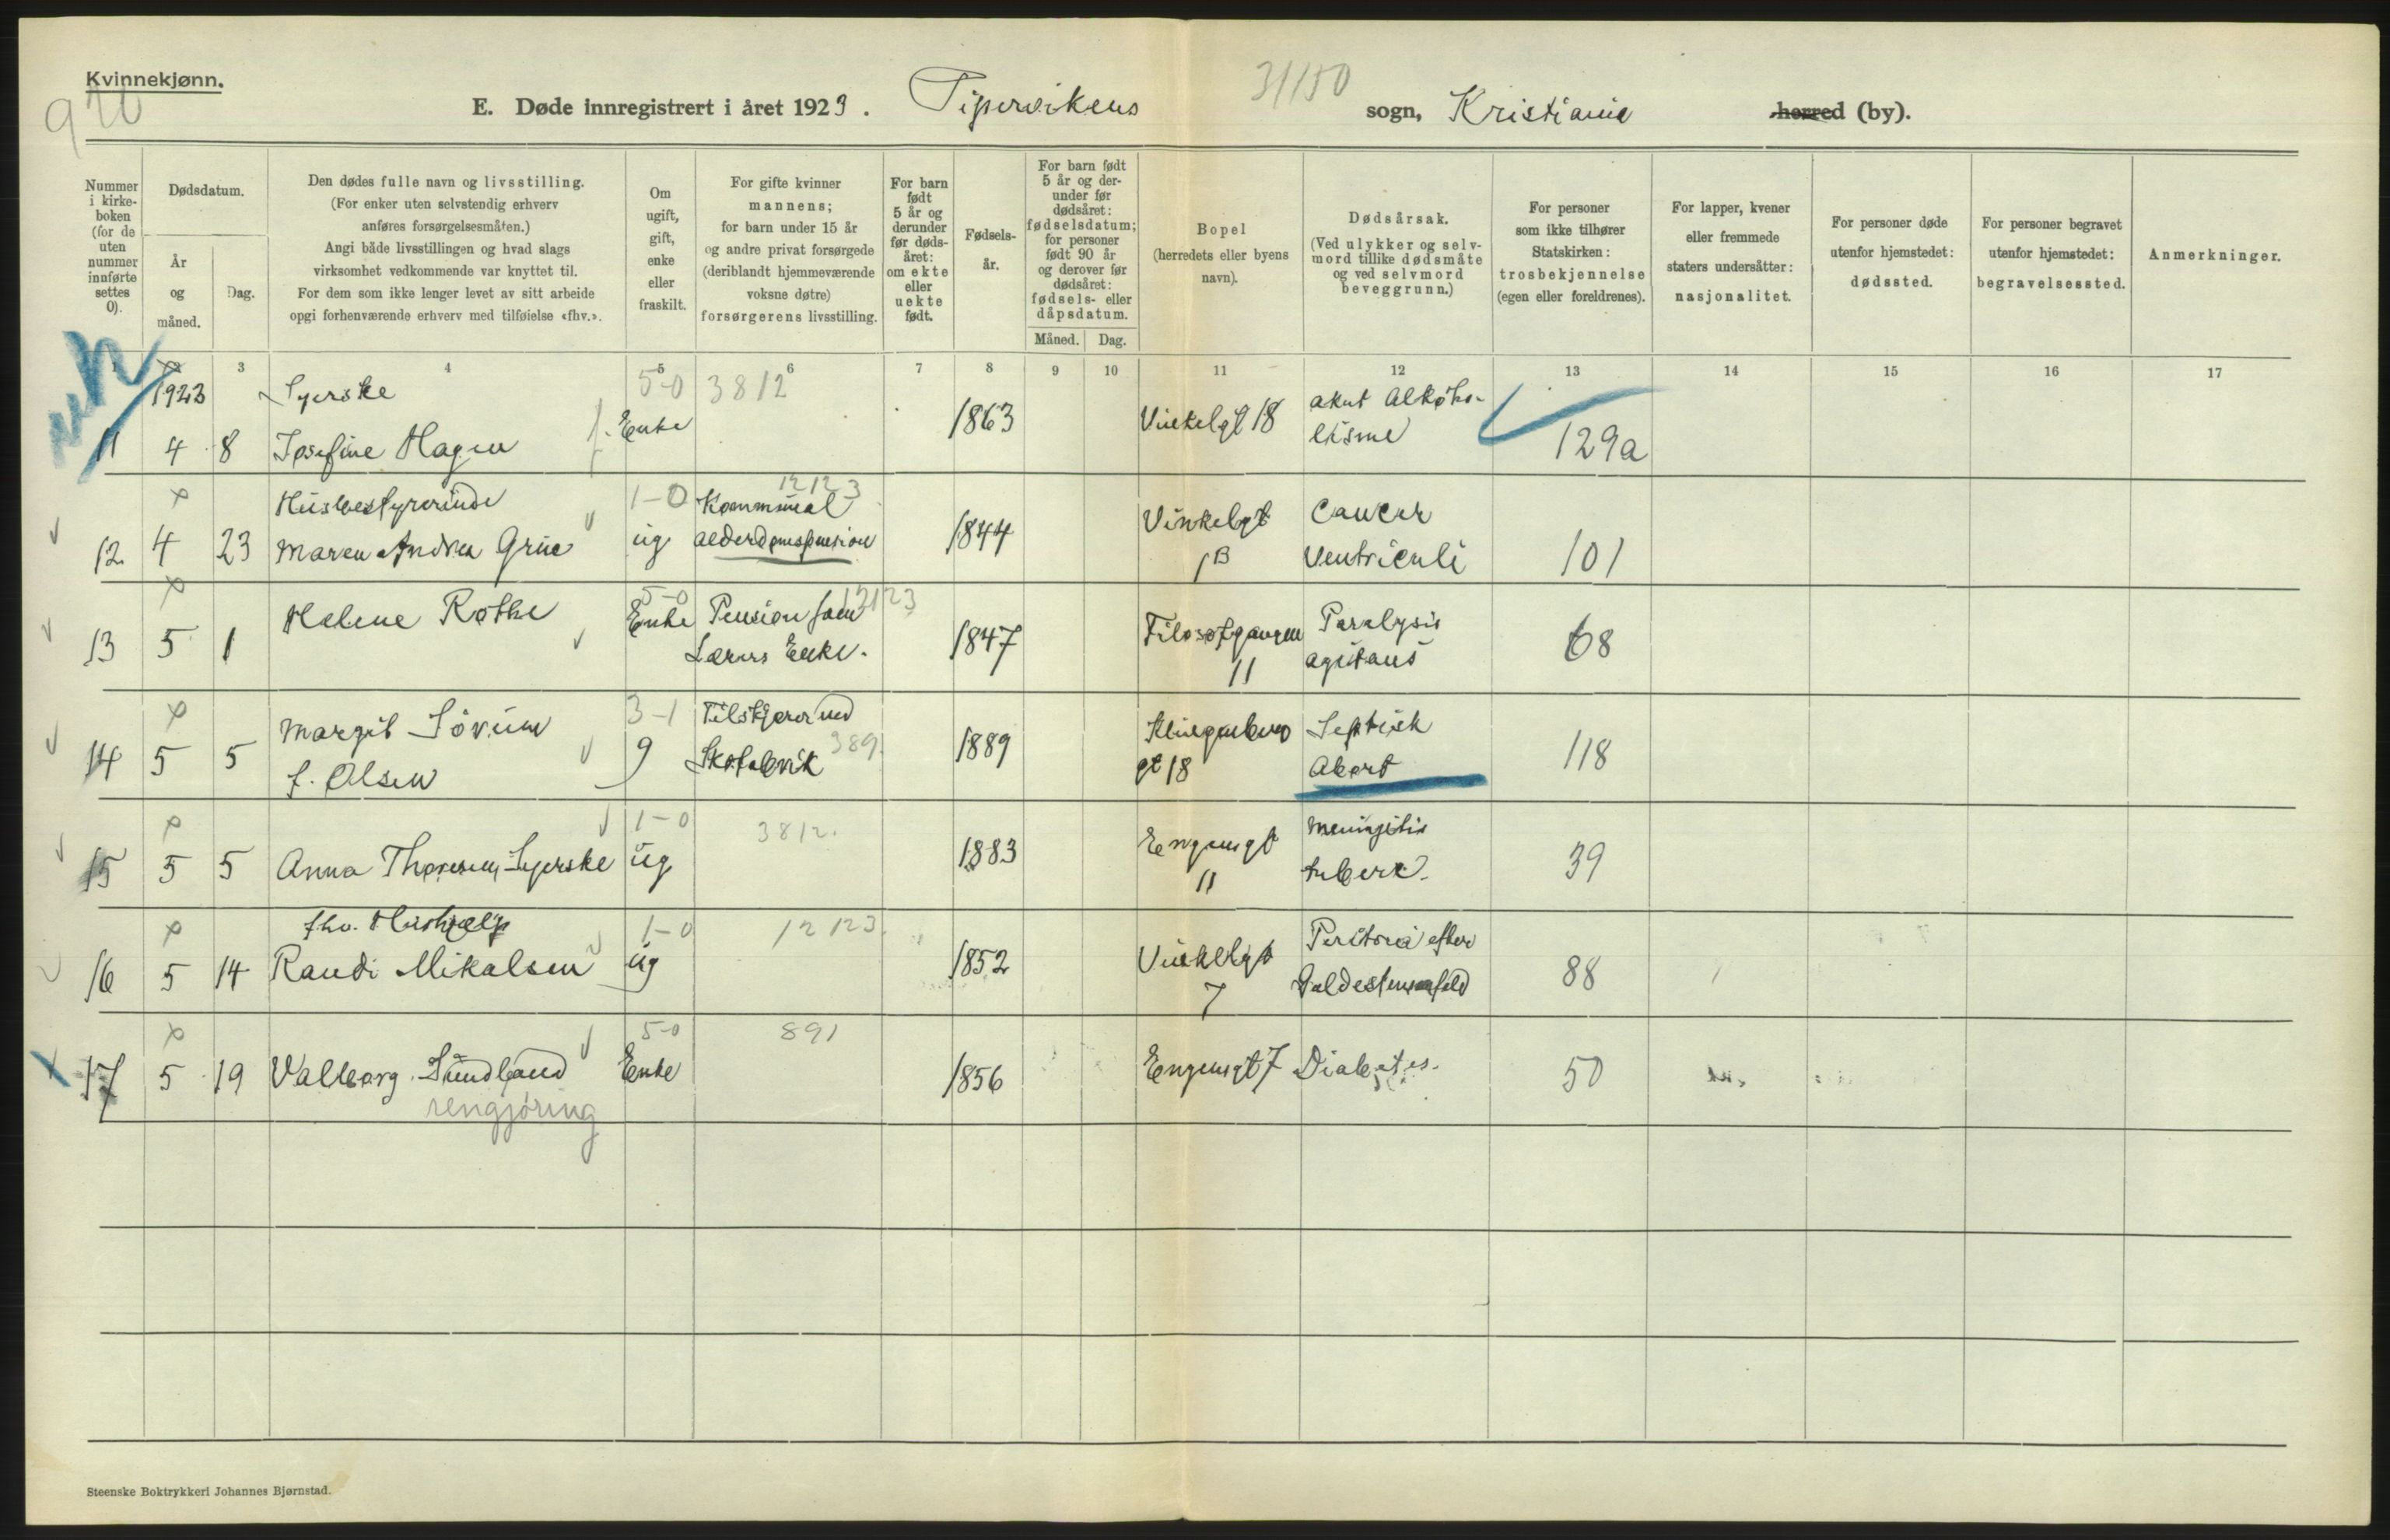 Kvinnekjønn.
920
E. Døde innregistrert i året 1923. Pipervikens 31/150 sogn, Kristiania herred (by).
Nummer i kirkeboken (for de uten nummer innførte settes 0).
Dødsdatum.
År og måned.
Dag.
Den dødes fulle navn og livsstilling.
(For enker uten selvstendig erhverv
anføres forsørgelsesmåten.)
Angi både livsstillingen og hvad slags
virksomhet vedkommende var knyttet til.
For dem som ikke lenger levet av sitt arbeide
opgi forhenværende erhverv med tilføielse «fhv.».
Om
ugift,
gift,
enke
eller
fraskilt.
For gifte kvinner
mannens;
for barn under 15 år
og andre privat forsørgede
(deriblandt hjemmeværende
voksne døtre)
forsørgerens livsstilling.
For barn
født
5 år og
derunder
før døds-
året:
om ekte
eller
uekte
født.
Fødsels-
år.
For barn født
5 år og der-
under før
dødsåret:
fødselsdatum;
for personer
født 90 år
og derover før
dødsåret:
fødsels- eller
dåpsdatum.
Måned. Dag.
Bopel
(herredets eller byens
navn).
Dødsårsak.
(Ved ulykker og selv-
mord tillike dødsmåte
og ved selvmord
beveggrunn.)
For personer
som ikke tilhører
Statskirken:
trosbekjennelse
(egen eller foreldrenes).
For lapper, kvener
eller fremmede
staters undersåtter:
nasjonalitet.
For personer døde
utenfor hjemstedet:
dødssted.
For personer begravet
utenfor hjemstedet:
begravelsessted.
Anmerkninger.
1 2 3 4 5 6 7 8 9 10 11 12 13 14 15 16 17
1923 Syerske 5-0 3812 akut Alkoho-
11 4 8 Josefine Hagen Enke 1863 Vinkelgt 18 lisme 129a
Husbestyrerinde 1-0 12123 Kommunal Vinkelgt Cancer
12 4 23 Maren Andrea Grue ug alderdomspension 1844 1B Ventriculi 101
Helene Rothe 5-0 Enke Pension som 12123 Filosofgangen Paralysis
13 5 1 Lærers Enke. 1847 11 agitans 68
Margit Sørum 3-1 Tilskjærer ved Klingenberg Septisk
14 5 5 f. Olsen g Skofabrik 389. 1889 gt 18 Abort 118
1-0 3812. Engensgt Meningitis
15 5 5 Anna Thoresen, Syerske ug 1883 11 tuberk. 39
fhv. Hushjælp 1-0 12123. Vinkelgt Peritoni efter
16 5 14 Randi Mikalsen ug 1852 7 Galdestensanfald 88
5-0 891
17 5 19 Valborg Sundland Enke 1856 Engensgt 7 Diabetes. 50
rengjøring
Steenske Boktrykkeri Johannes Bjørnstad.